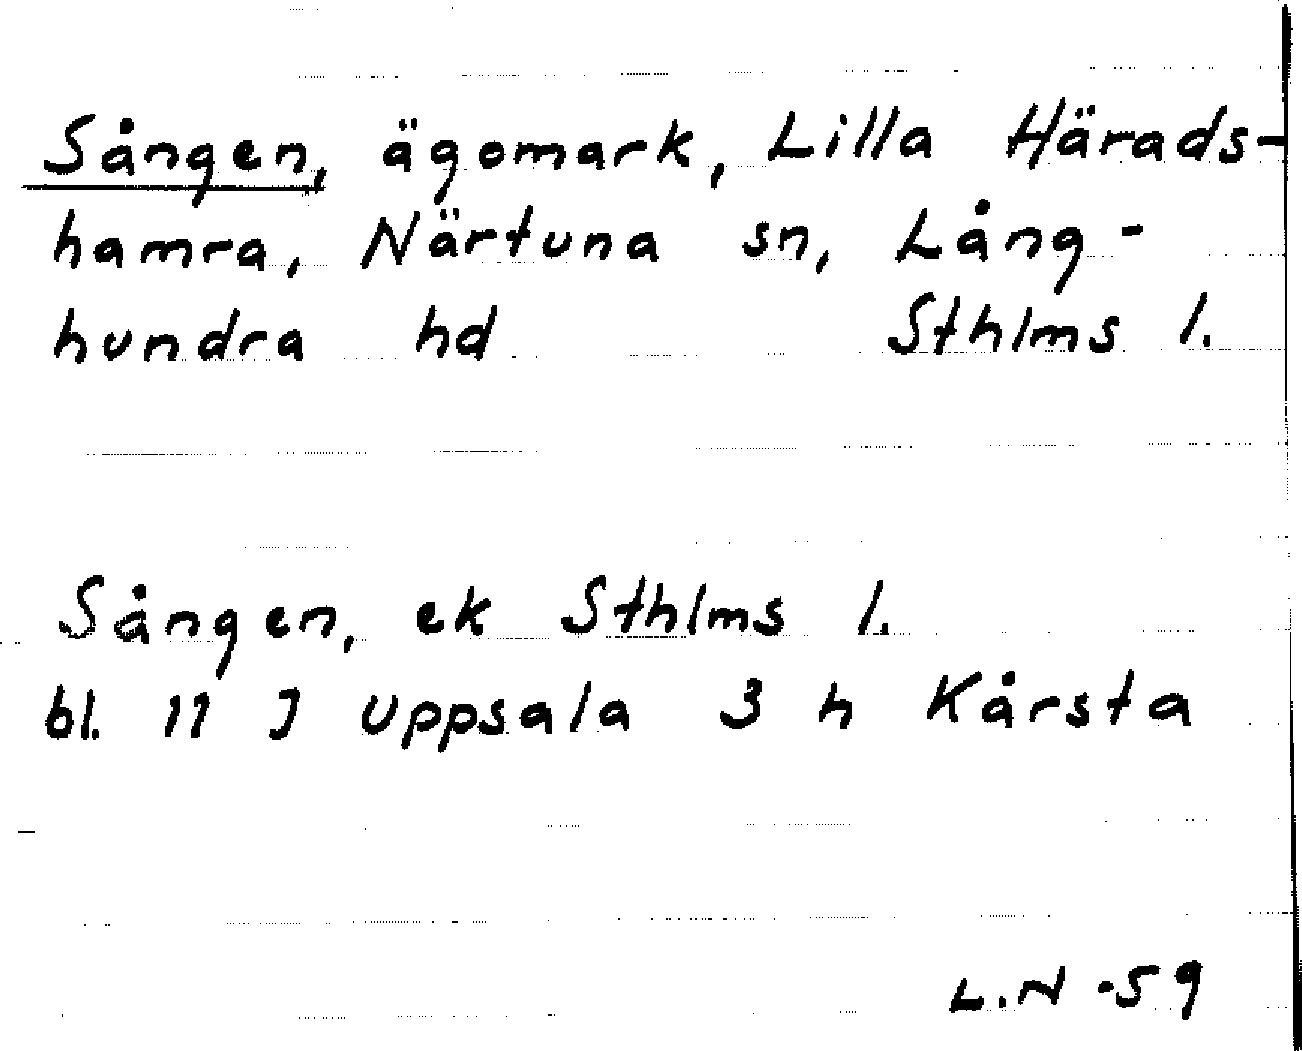 Sången, ägomark, Lilla Härads-
hamra, Närtuna sn, Lång-
hundra hd Sthlms l.
Sången, ek Sthlms l.
bl. 11 J Uppsala 3 h Kårsta
L.N -59